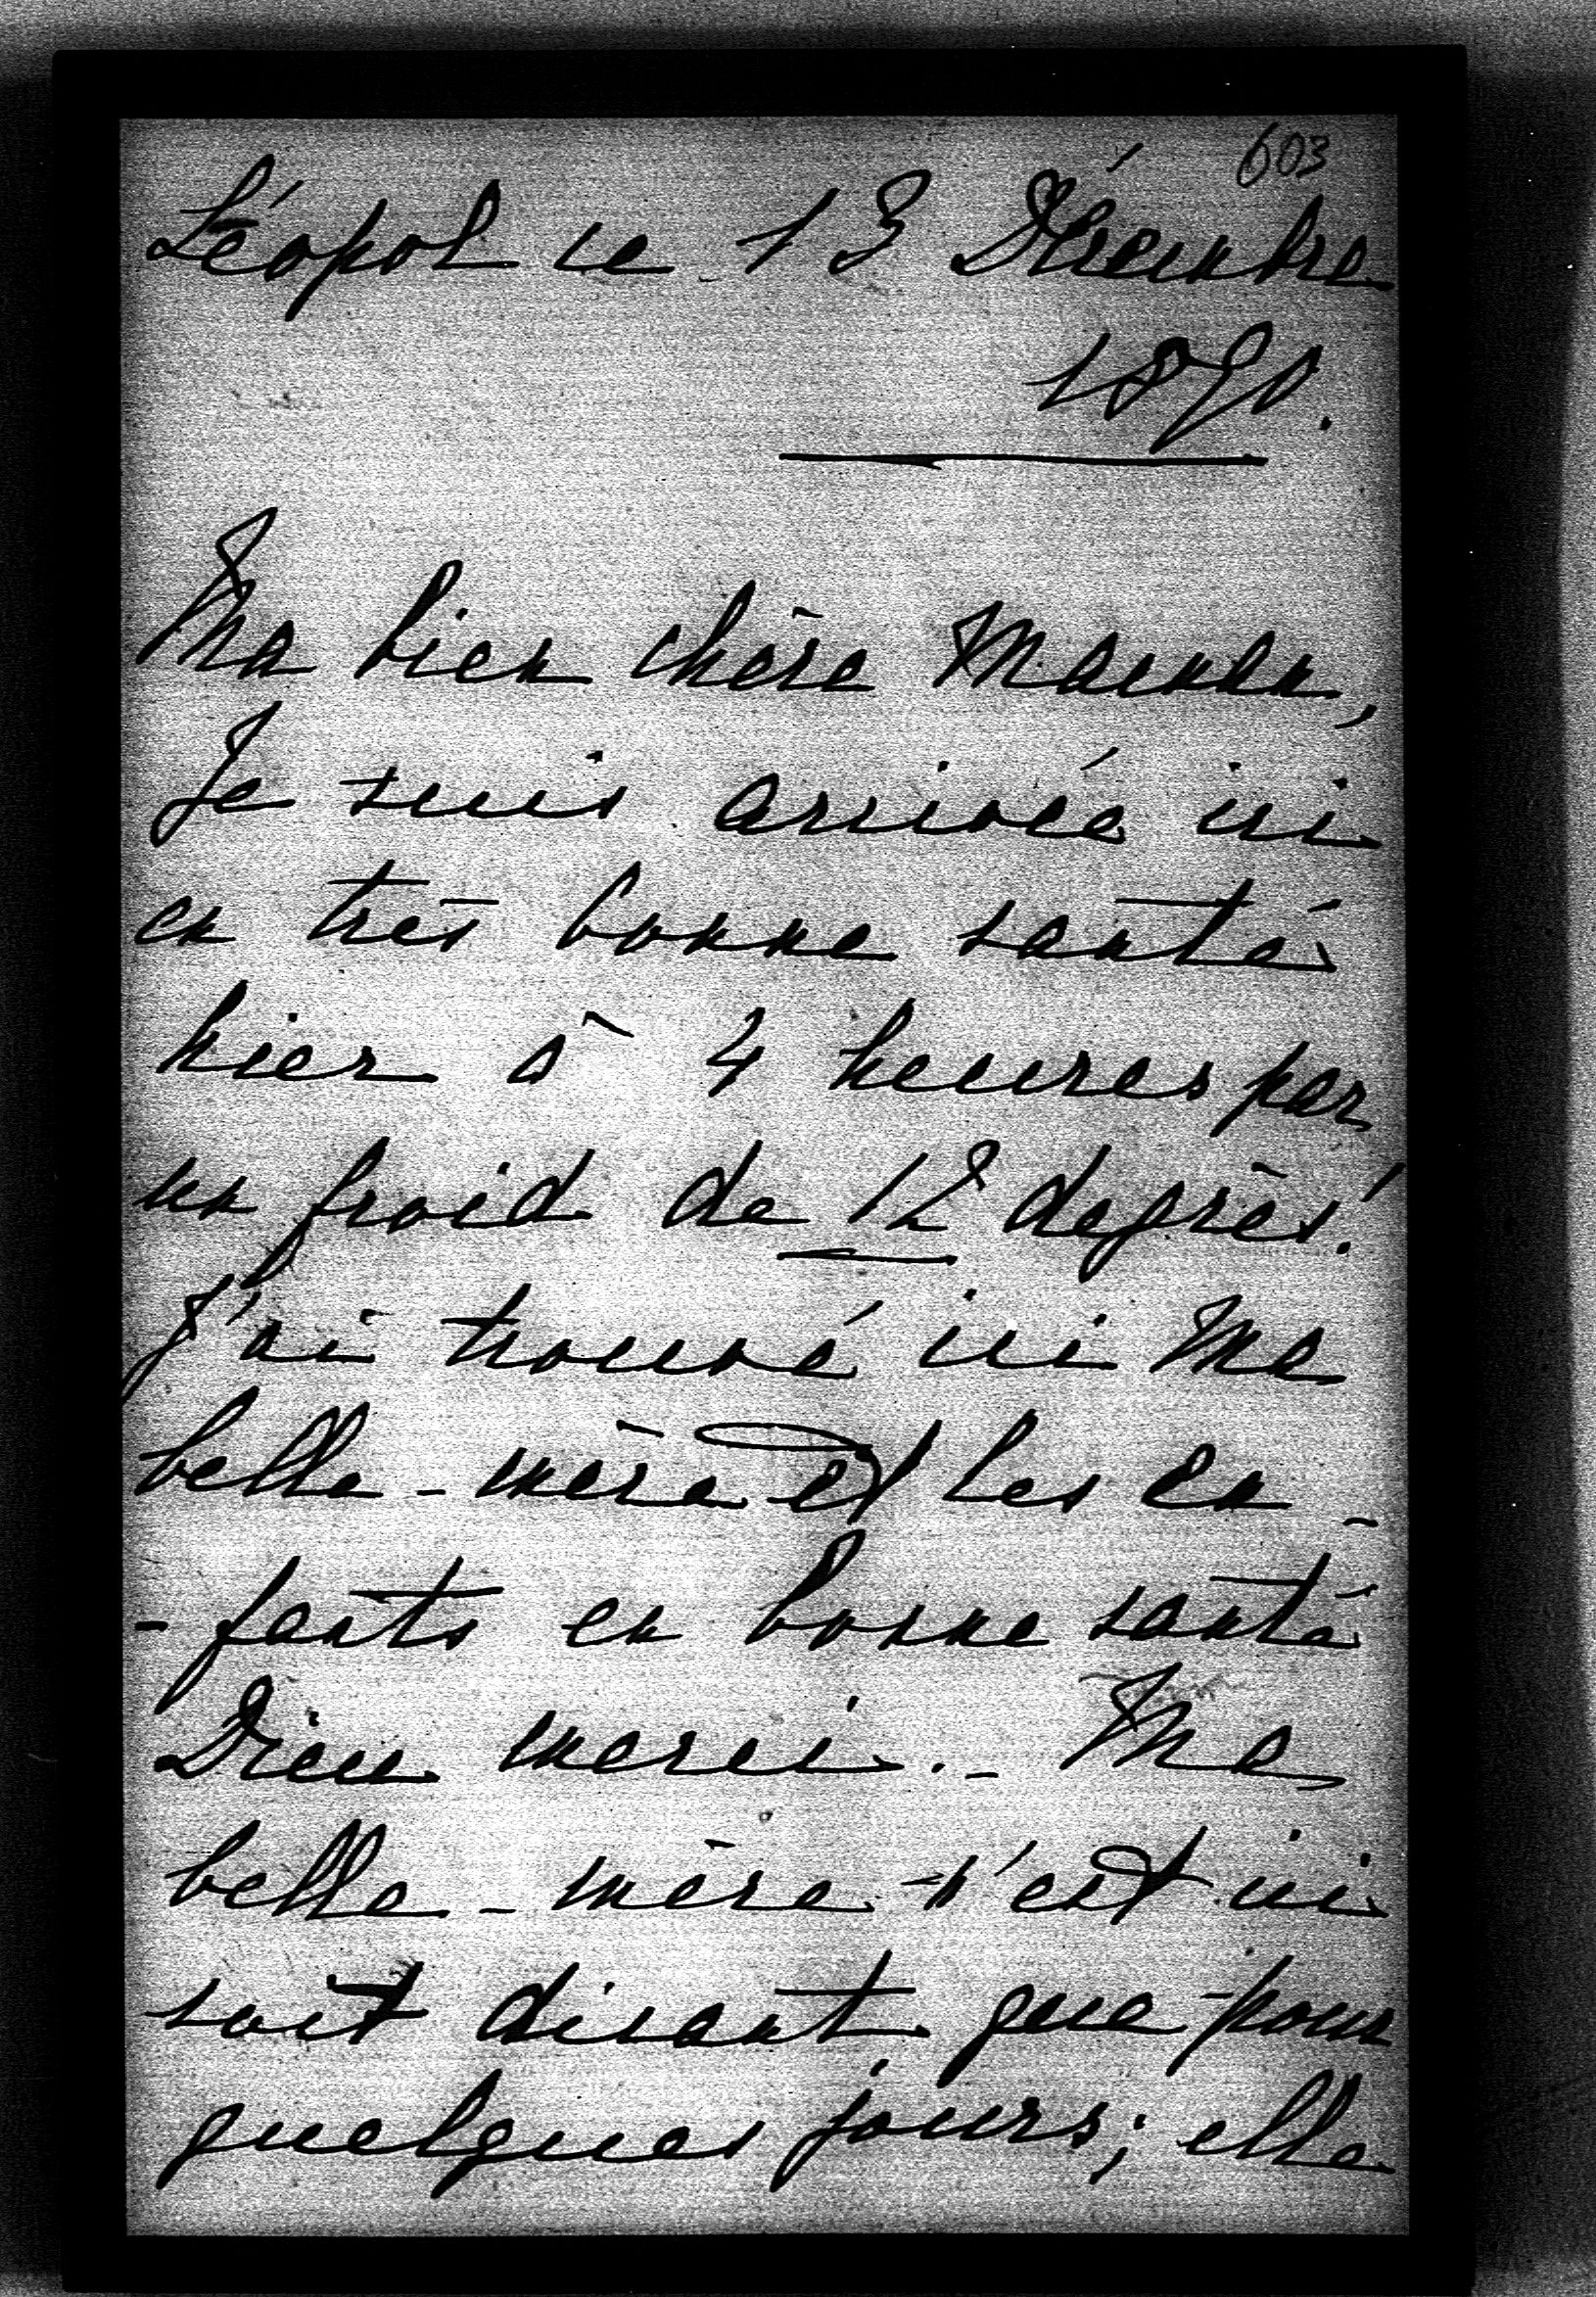 603
Léopol ce 13 Décembre
1890.
Ma bien chère Maman,
Je suis arrivée ici
en très bonne santé
hier à 4 heures par
un froid de 12 degrès!
J'ai trouvé ici Ma
belle-mère et les en-
-fants en bonne santé
Dieu merci. - Ma
belle-mère n'est ici
soit disant que pour
quelques jours; elle